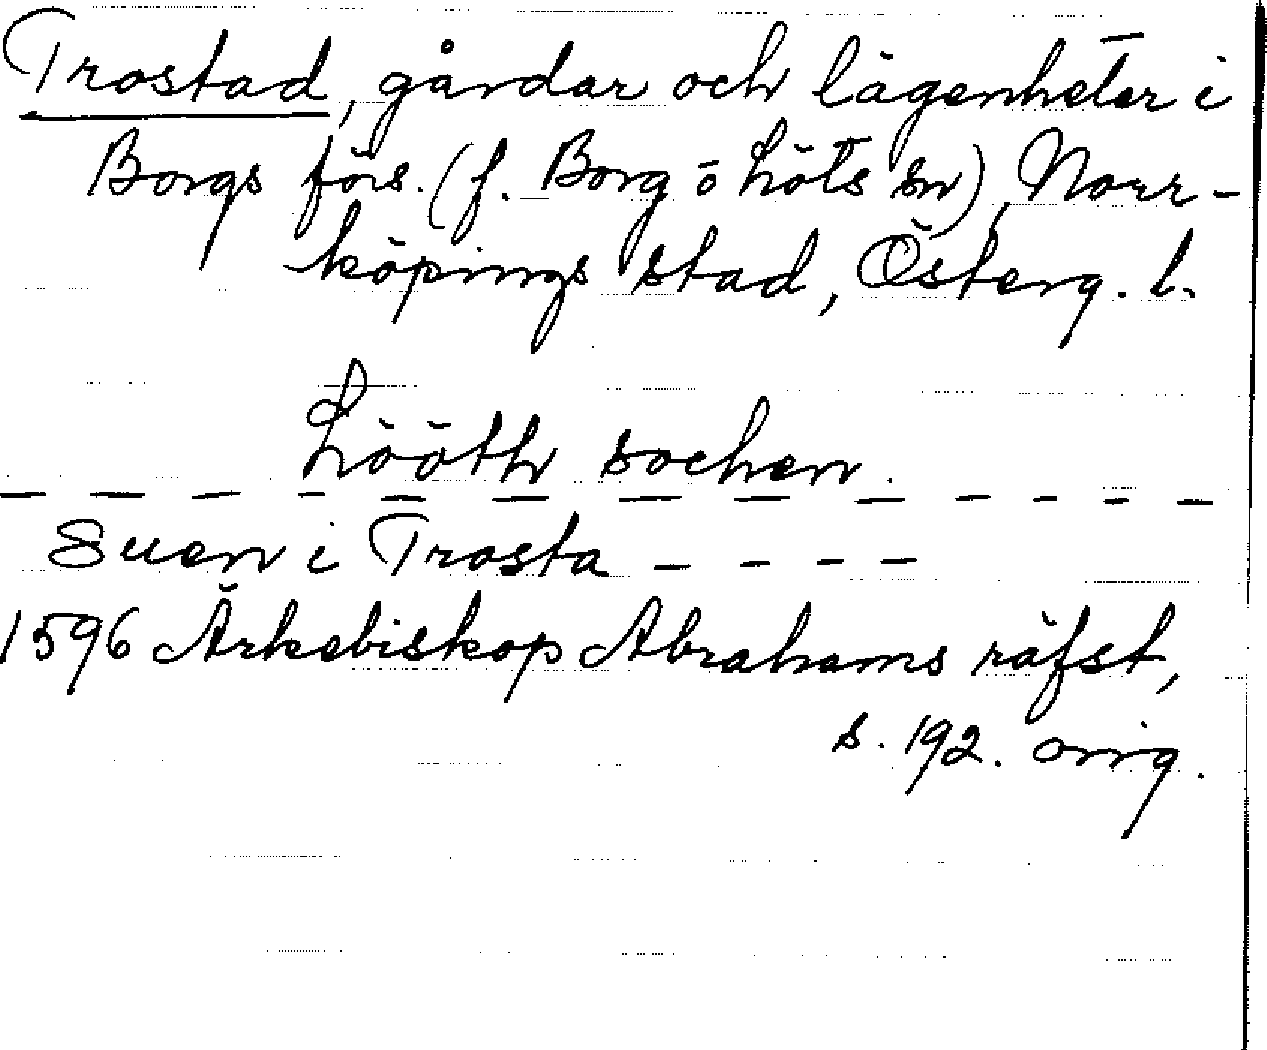 Trostad, gårdar och lägenheter i
Borgs förs. (f. Borg o Löts sn), Norr-
köpings stad, Österg. l.
Lööth sochen.
— — — — — — — — — — — — —
Suen i Trosta — — — —
1596 Ärkebiskop Abrahams räfst,
s. 192. orig.